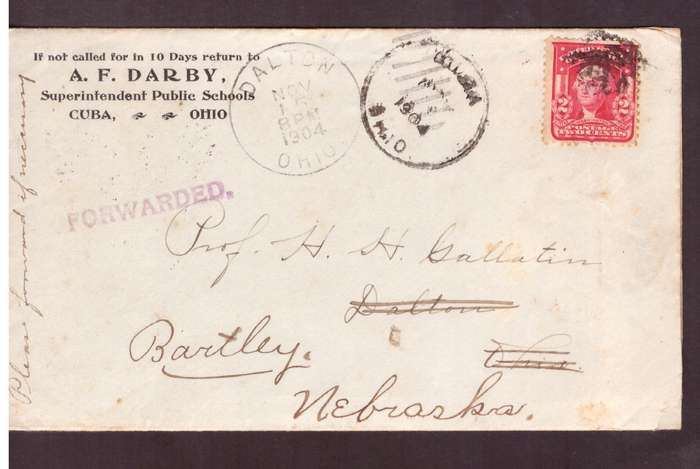 If not called for in 10 Days return to
A. F. DARBY,
Superintendent Public Schools
CUBA, OHIO
DALTON
NOV
8 PM
1904
OHIO
OHIO
2 2
POSTAGE
TWO CENTS
FORWARDED.
Please forward if necessary
Prof. H. H. Gallatin
Dalton
Ohio.
Bartley.
Nebraska.